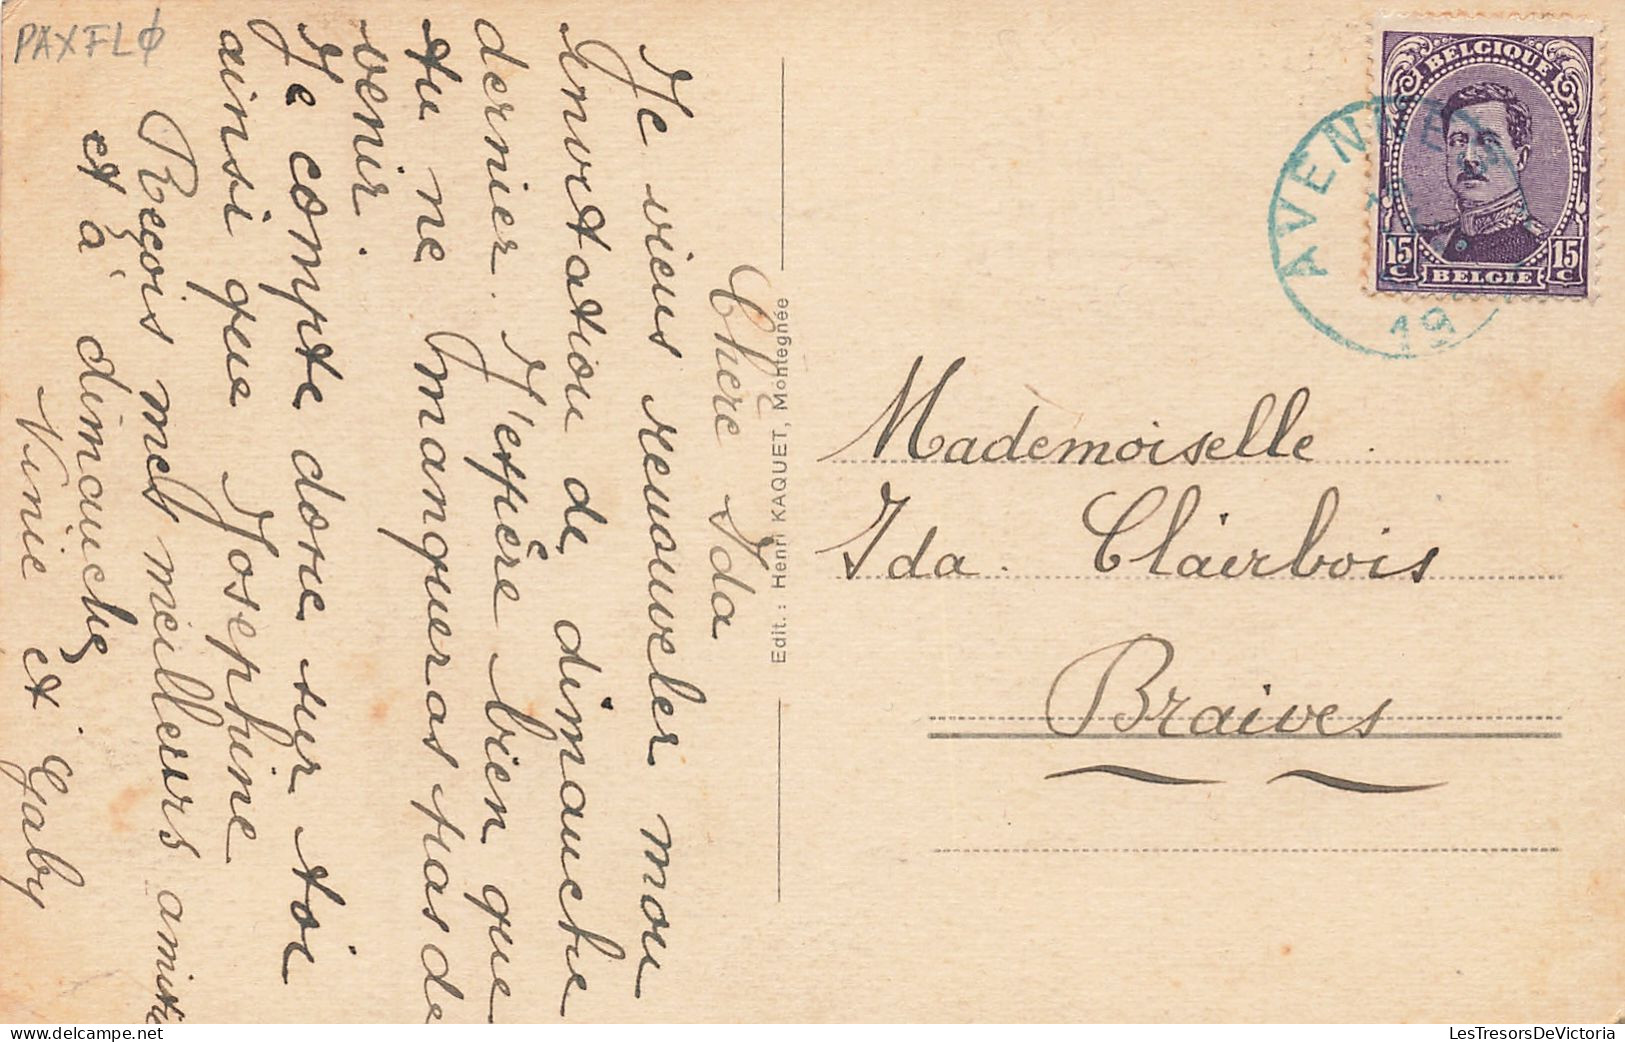 PAXFLϕ
Chère Ida
Je viens renouveler mon
invitation de dimanche
dernier. J'espère bien que
tu ne manqueras pas de
venir.
Je compte donc sur toi
ainsi que Josephine
Reçois mes meilleurs amitiés
et à dimanche
Ninie et Gaby
Edit.: Henri KAQUET, Montegnée
BELGIQUE
15 C 15 C
BELGIE
AVENNES
19
Mademoiselle
Ida Clairbois
Braives
LesTresorsDeVictoria